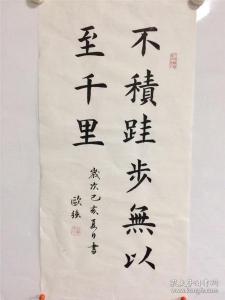 不積跬步無以
至千里
歲次己亥夏月書
歐強